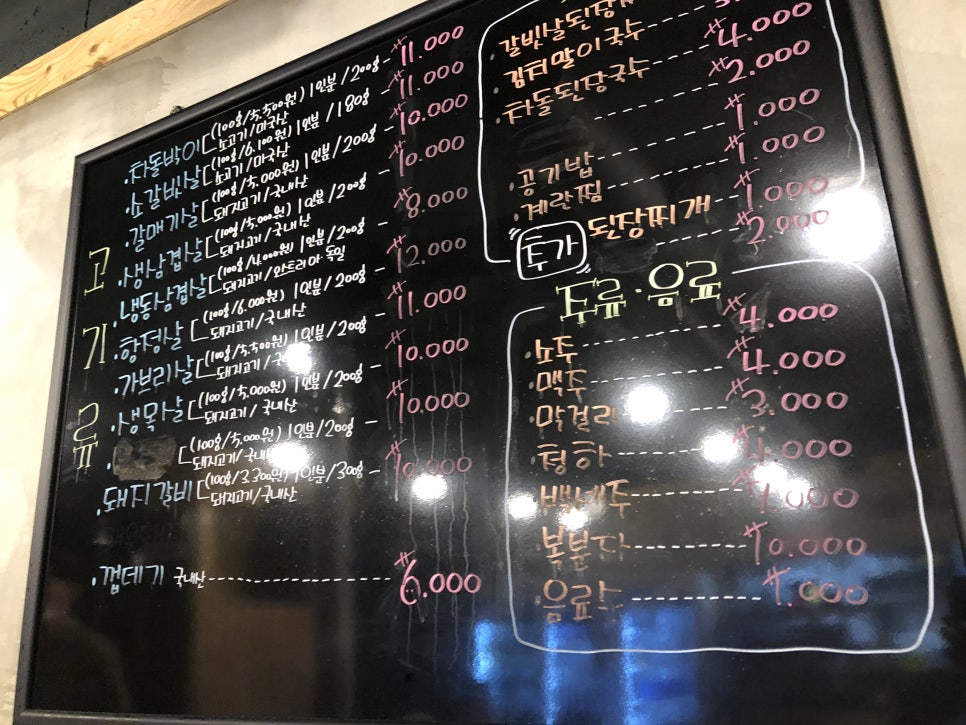 고기류
·차돌박이 (100g/5,500원) 1인분/200g - ₩11.000
소고기/미국산
·소갈빗살 (100g/6.100원) 1인분/180g - ₩11.000
소고기/미국산
·갈매기살 (100g/5,000원) 1인분/200g - ₩10.000
돼지고기/국내산
·생삼겹살 (100g/5,000원) 1인분/200g - ₩10.000
돼지고기/국내산
·냉동삼겹살 (100g/4,000원) 1인분/200g - ₩8.000
돼지고기/와트리아 독일
·항정살 (100g/6,000원) 1인분/200g - ₩12.000
돼지고기/국내산
·가브리살 (100g/5,500원) 1인분/200g - ₩11.000
돼지고기/국내산
·생목살 (100g/5,000원) 1인분/200g - ₩10.000
돼지고기/국내산
(100g/5,000원) 1인분/200g - ₩10.000
돼지고기/국내산
·돼지갈비 (100g/3.300원) 1인분/300g - ₩10.000
돼지고기/국내산
·껍데기 국내산 ---- ₩6.000
·갈빗살된장
·김치말이국수 ---- ₩4.000
·차돌된장국수 ---- ₩2.000
₩1.000
·공기밥 ---- ₩1.000
·계란찜 ---- ₩1.000
추가 된장찌개 ---- ₩2.000
주류·음료
·소주 ---- ₩4.000
·맥주 ---- ₩4.000
·막걸리 ---- ₩3.000
·청하 ---- ₩4.000
·백세주 ---- ₩7.000
·복분자 ---- ₩10.000
·음료수 ---- ₩1.000